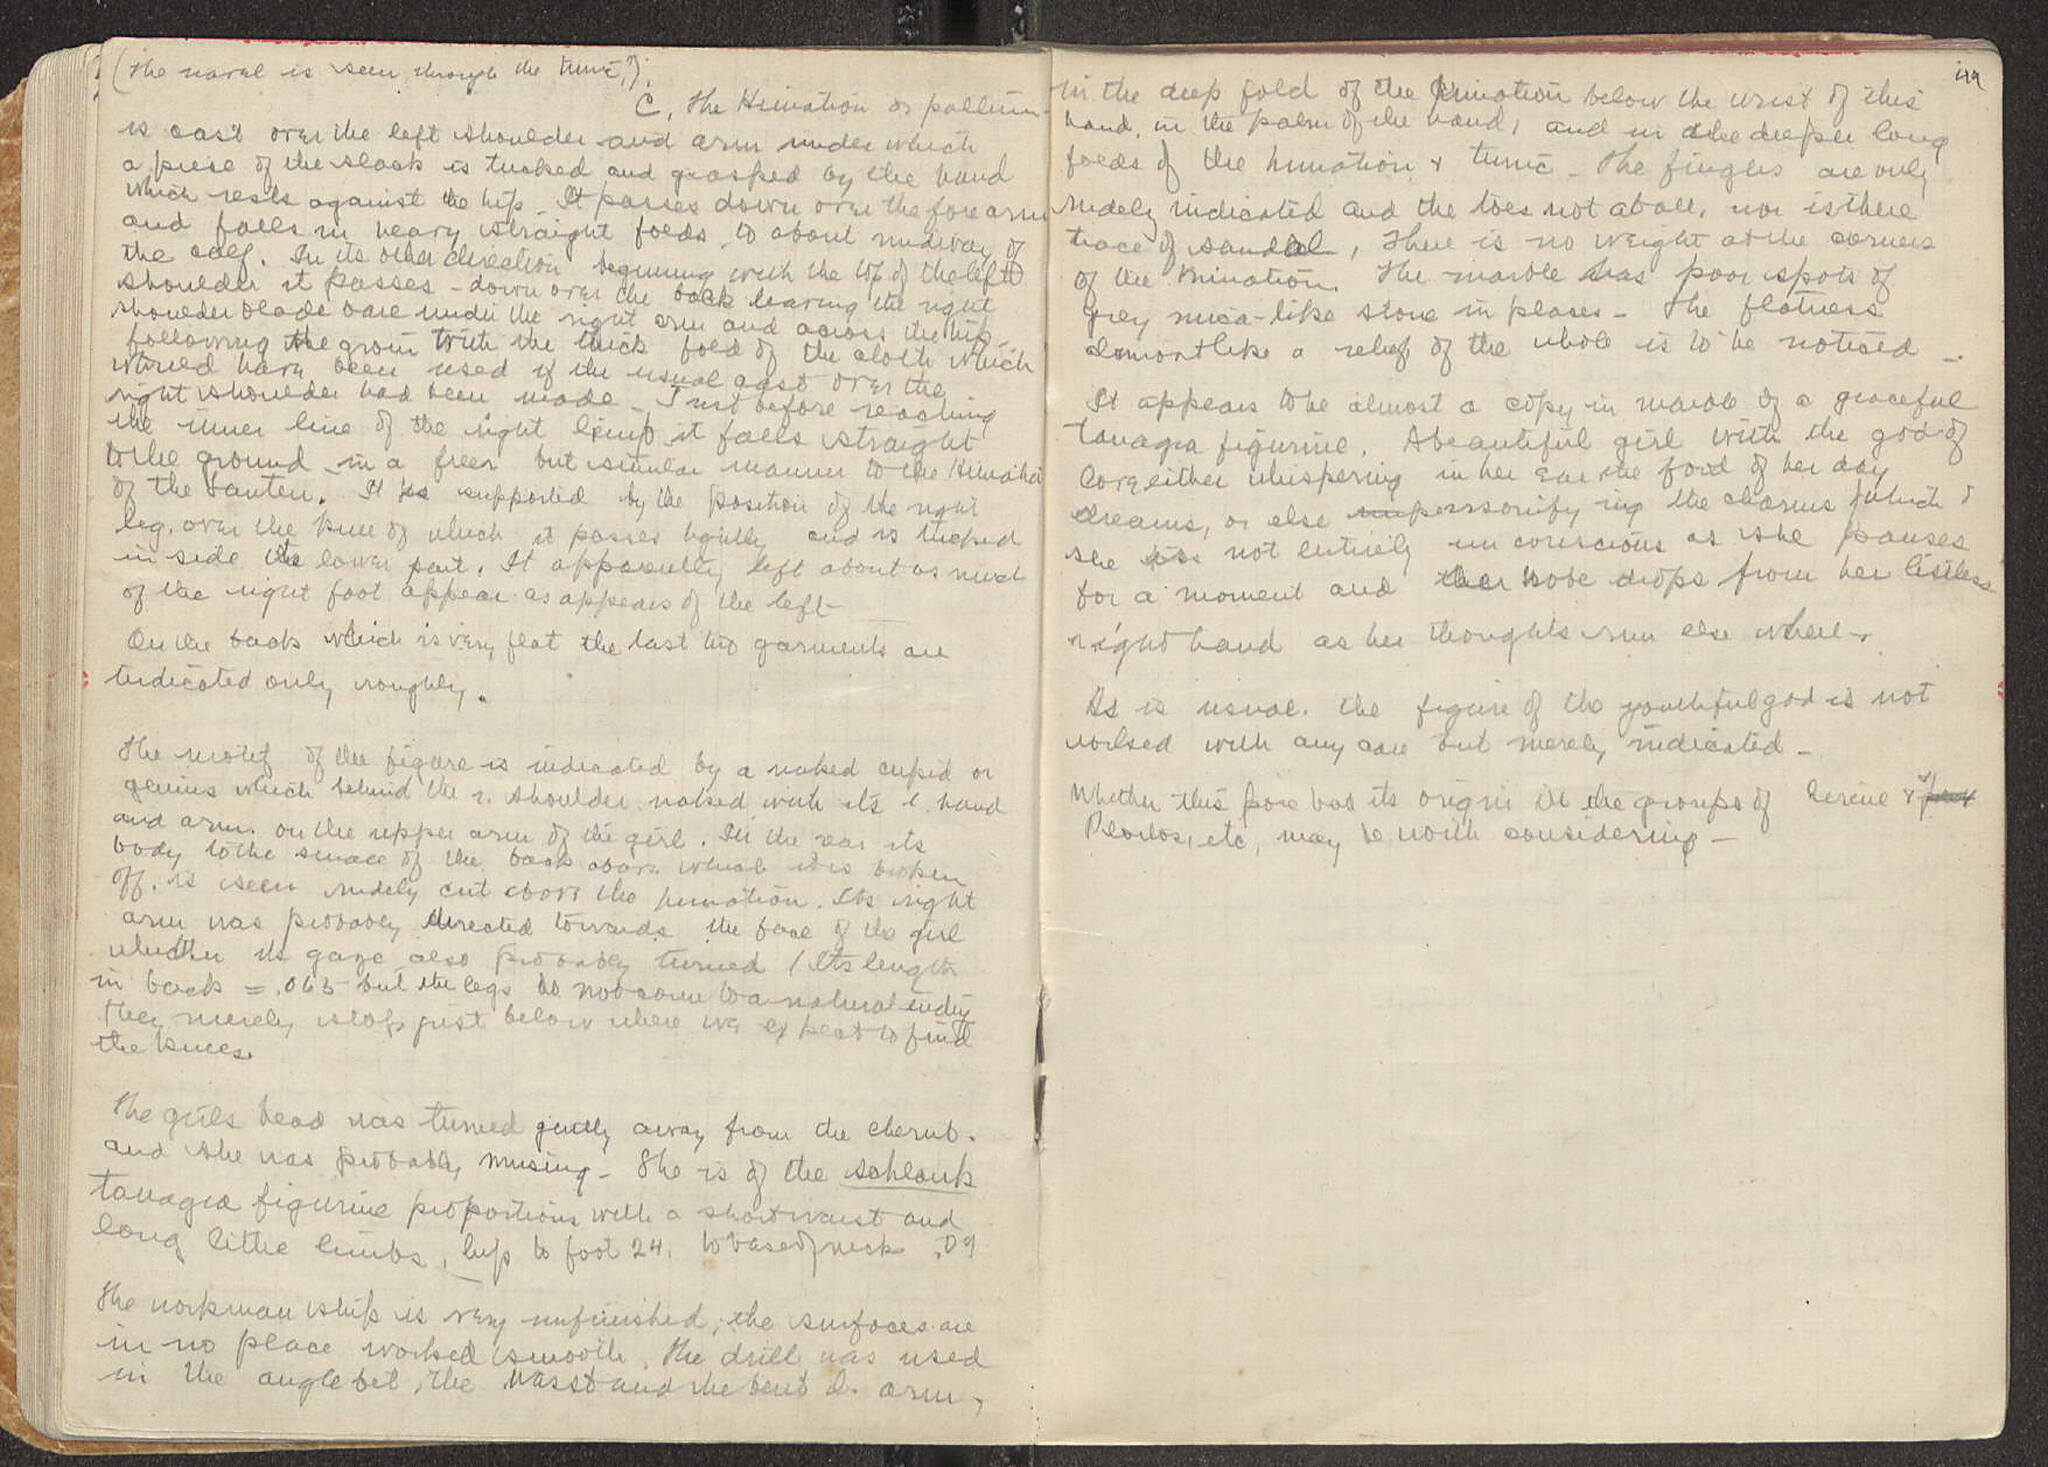 (The naval is seen through the tunic,?).
C, The Himation or pallium
is cast over the left shoulder and arm under which
a piece of the slack is tucked and grasped by the hand
which rests against the hip. It passes down over the fore arm
and falls in heavy straight folds to about midway of
the calf. In its other direction beginning with the top of the left
shoulder it passes - down over the back leaving the right
shoulder blade bare under the right arm and across the hip
following the groin with the thick fold of the cloth which
would have been used if the usual cast over the
right shoulder had been made - Just before reaching
the inner line of the right limb it falls straight
to the ground in a freer but similar manner to the Himation
of the . It is supported by the position of the right
leg, over the knee of which it passes lightly and is tucked
in side the lower part. It apparently left about as much
of the right foot appear as appears of the left
On the back which is very flat the last two garments are
indicated only roughly.
The motif of the figure is indicated by a naked cupid or
genius which behind the r. shoulder naked with its l hand
and arm on the upper arm of the girl. In the rear its
body to the of the back above which it is broken
off, is seen rudely cut above the himation. Its right
arm was probably directed towards the face of the girl
whither its gaze also probably turned / Its length
in back = .065 but the legs do not come to a natural ending
they merely stop just below where we expect to find
the knees.
The girls head was turned gently away from the cherub.
and she was probably musing - She is of the schlank
tanagra figurine proportions with a short waist and
long lithe limbs, hip to foot 24. to base of neck .09
The workmanship is very unfinished, the surfaces are
in no place worked smooth, The drill was used
in the angle bet, the waist and the bent l. arm,
in the deep fold of the himation below the wrist of this
hand, in the palm of the hand, and in the deeper long
folds of the himation & tunic - The fingers are only
rudely indicated and the toes not at all, nor is there
trace of sandal, There is no weight at the corners
of the himation. The marble has poor spots of
grey mica-like stone in places - The flatness
almost like a relief of the whole is to be noticed -
It appears to be almost a copy in marble of a graceful
tanagra figurine. A beautiful girl with the god of
love either whispering in her ear the food of her day
dreams, or else personifying the charms of which
she is not entirely unconscious as she pauses
for a moment and her robe drops from her listless
right hand as her thoughts run else where.
As is usual. the figure of the youthful god is not
worked with any care but merely indicated -
Whether this pose has its origin in the groups of Eirene &
Ploutos, etc, may be worth considering -